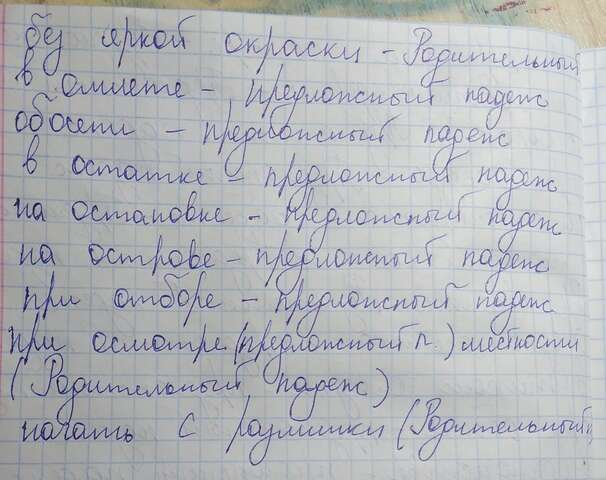 без яркой окраски - Родительный
в омлете - предложный падеж
об осени - предложный падеж
в остатке - предложный падеж
на остановке - предложный падеж
на острове - предложный падеж
при отборе - предложный падеж
при осмотре (предложный п.) местности
(Родительный падеж)
начать с разминки (Родительный п